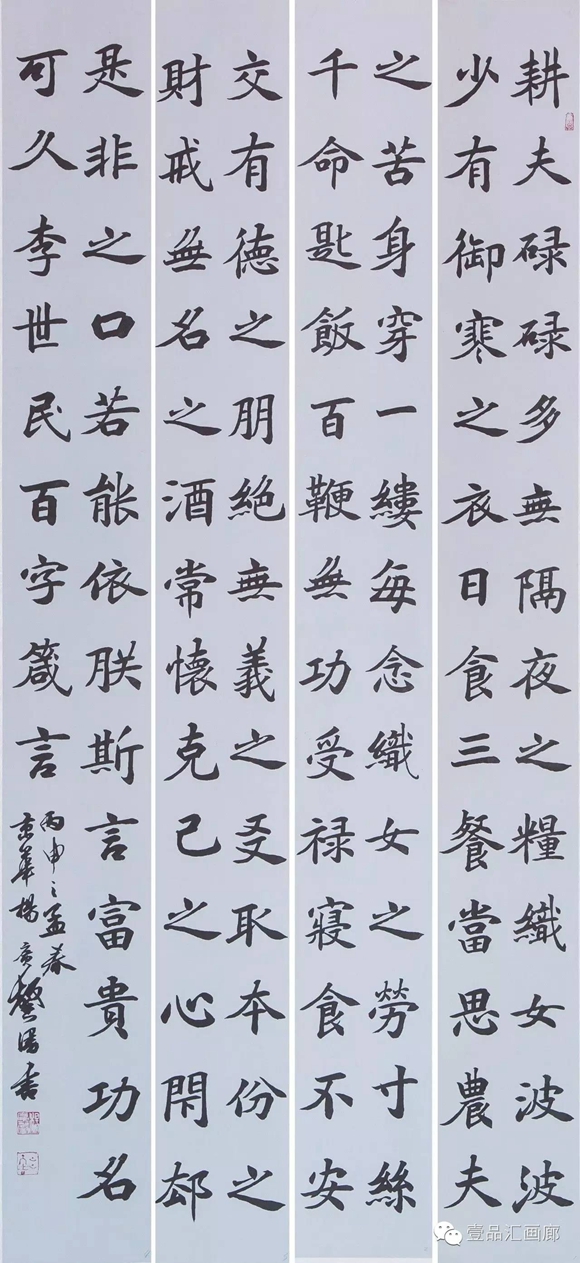 耕夫碌碌多無隔夜之糧織女波波
少有御寒之衣日食三餐當思農夫
之苦身穿一縷每念織女之勞寸絲
千命匙飯百鞭無功受禄寢食不安
交有德之朋絕無義之友取本份之
財戒無名之酒常懷克己之心閉卻
是非之口若能依朕斯言富貴功名
可久李世民百字箴言
丙申之孟春
京華楊廣馨書
壹品汇画廊